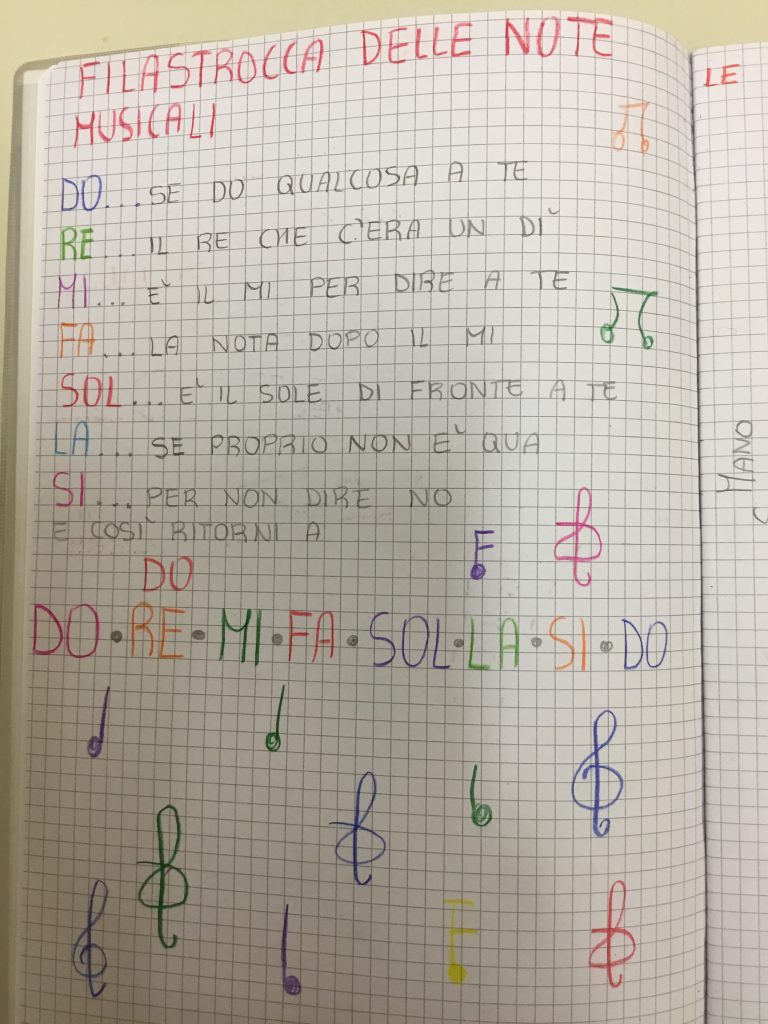 FILASTROCCA DELLE NOTE
MUSICALI
DO...SE DO QUALCOSA A TE
RE...IL RE CHE C'ERA UN DÌ
MI...E' IL MI PER DIRE A TE
FA...LA NOTA DOPO IL MI
SOL...E' IL SOLE DI FRONTE A TE
LA...SE PROPRIO NON E' QUA
SI...PER NON DIRE NO
E COSI' RITORNI A
DO
DO·RE·MI·FA·SOL·LA·SI·DO
LE
MANO